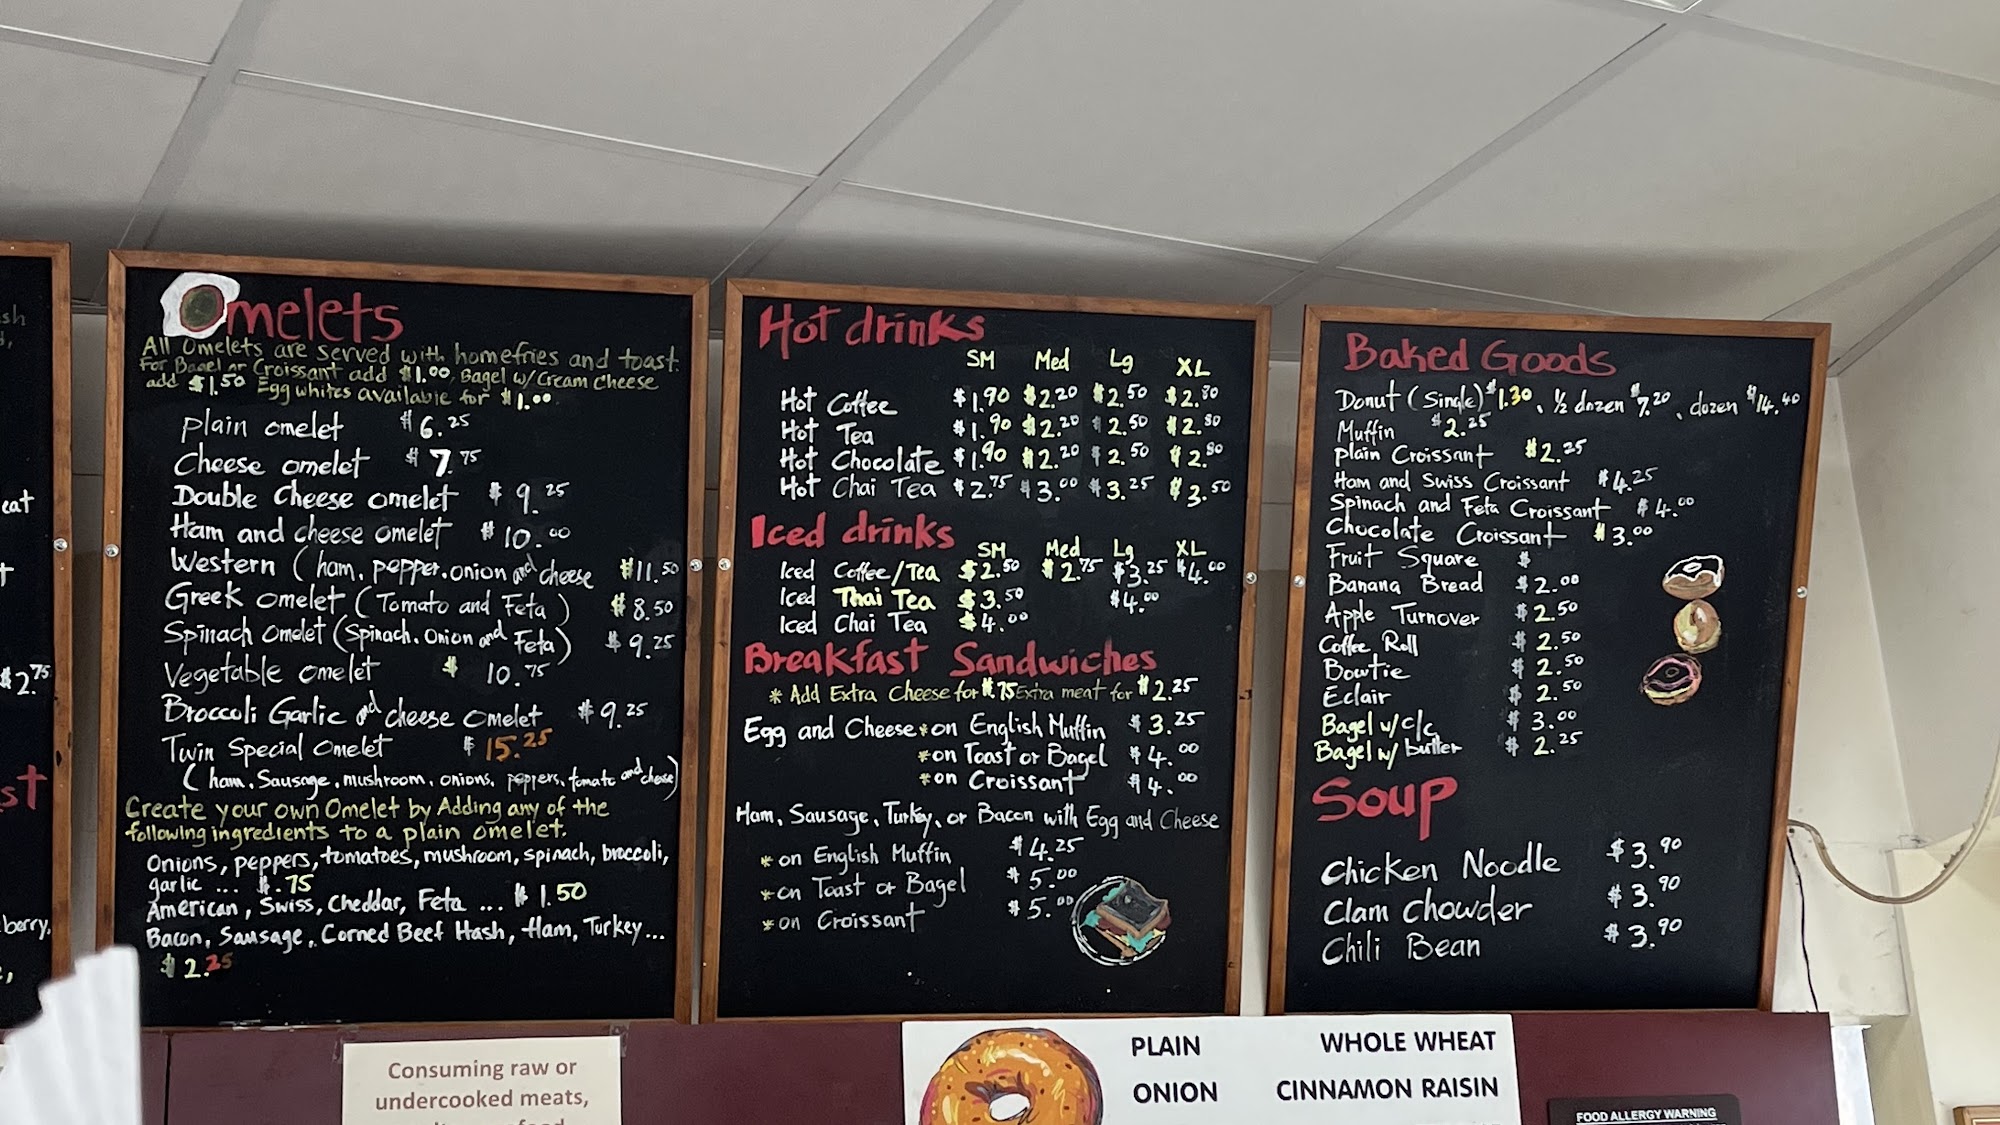 sh
eat
$2.75
st
berry,
Omelets
All omelets are served with homefries and toast.
For Bagel or Croissant add $1.00, Bagel w/Cream Cheese
add $1.50 Egg whites available for $1.00
Plain omelet $6.25
Cheese omelet $7.75
Double Cheese omelet $9.25
Ham and cheese omelet $10.00
Western (ham, pepper, onion and cheese $11.50
Greek omelet (Tomato and Feta) $8.50
Spinach Omelet (Spinach, Onion and Feta) $9.25
Vegetable omelet $10.75
Broccoli Garlic and cheese omelet $9.25
Twin Special Omelet $15.25
(ham, Sausage, mushroom, onions, peppers, tomato and cheese)
Create your own Omelet by Adding any of the
following ingredients to a plain omelet.
Onions, peppers, tomatoes, mushroom, spinach, broccoli,
garlic ... $.75
American, Swiss, Cheddar, Feta ... $1.50
Bacon, Sausage, Corned Beef Hash, Ham, Turkey...
$2.25
Hot drinks
SM Med Lg XL
Hot Coffee $1.90 $2.20 $2.50 $2.80
Hot Tea $1.90 $2.20 $2.50 $2.80
Hot Chocolate $1.90 $2.20 $2.50 $2.80
Hot Chai Tea $2.75 $3.00 $3.25 $3.50
Iced drinks
SM Med Lg XL
Iced Coffee/Tea $2.50 $2.75 $3.25 $4.00
Iced Thai Tea $3.50 $4.00
Iced Chai Tea $4.00
Breakfast Sandwiches
* Add Extra Cheese for $.75 Extra meat for $2.25
Egg and Cheese *on English Muffin $3.25
*on Toast or Bagel $4.00
*on Croissant $4.00
Ham, Sausage, Turkey, or Bacon with Egg and Cheese
*on English Muffin $4.25
*on Toast or Bagel $5.00
*on Croissant $5.00
Baked Goods
Donut (Single) $1.30, 1/2 dozen $7.20, dozen $14.40
Muffin $2.25
Plain Croissant $2.25
Ham and Swiss Croissant $4.25
Spinach and Feta Croissant $4.00
Chocolate Croissant $3.00
Fruit Square $
Banana Bread $2.00
Apple Turnover $2.50
Coffee Roll $2.50
Bowtie $2.50
Eclair $2.50
Bagel w/c/c $3.00
Bagel w/ butter $2.25
Soup
Chicken Noodle $3.90
Clam Chowder $3.90
Chili Bean $3.90
Consuming raw or
undercooked meats,
PLAIN WHOLE WHEAT
ONION CINNAMON RAISIN
FOOD ALLERGY WARNING